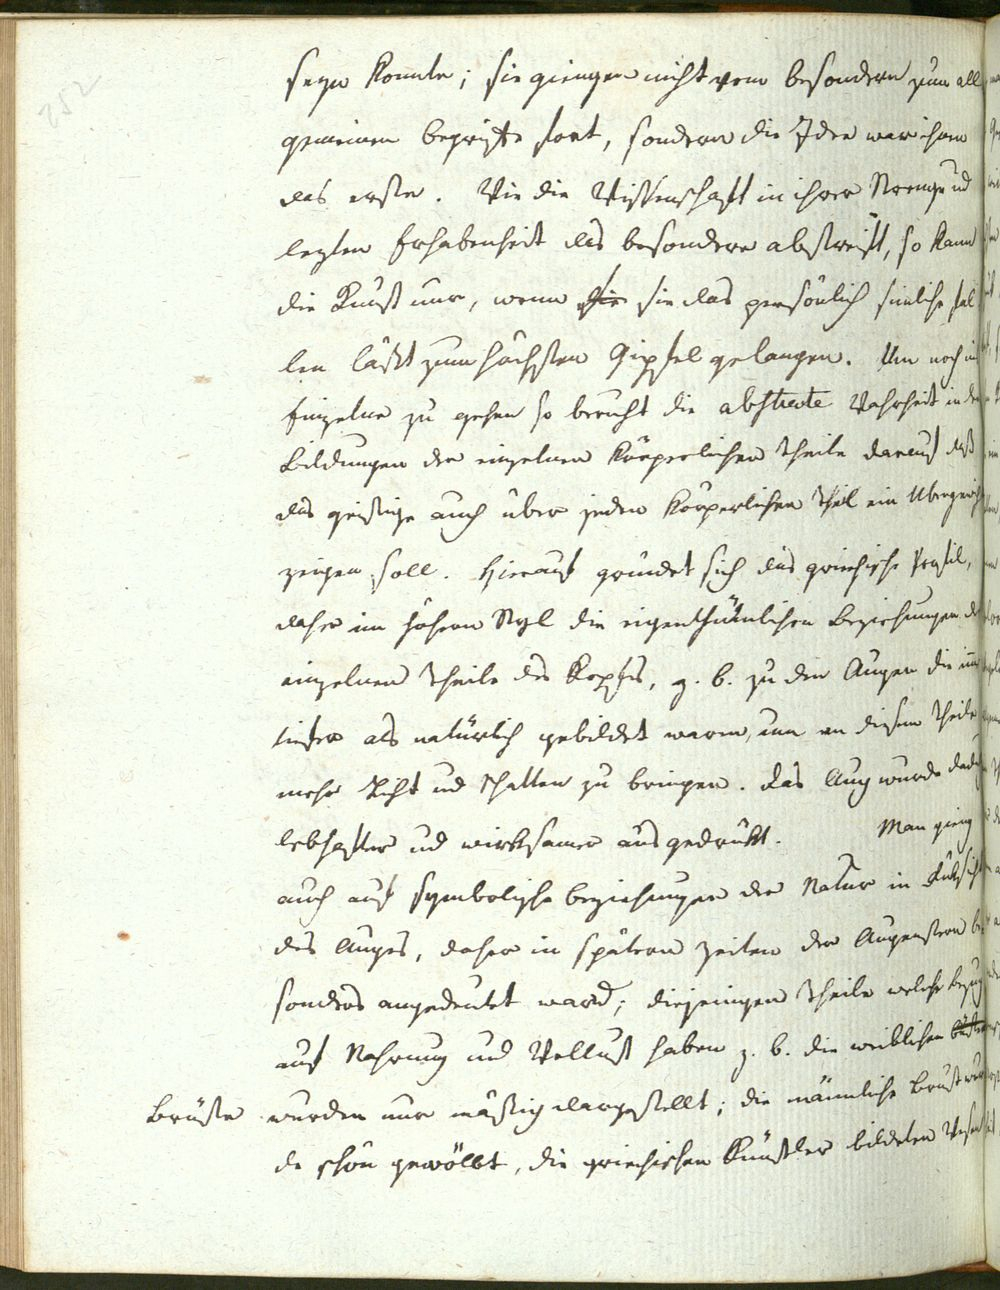 252
seyn konnte; sie giengen nicht vom besondern zum all
gemeinen begriffe fort, sondern die Idee war ihnen
das erste. Wie die Wissenschaft in ihrer Strenge ud
lezten Erhabenheit das besondere abstreift, so kann
die Kunst nur, wenn sie das persönlich sinliche fal
len läßt zum höchsten Gipfel gelangen. Um noch ins
Einzelne zu gehen so beruht die abstracte Wahrheit in den
Bildungen der einzelnen körperlichen Theile darauf daß
das geistige auch über jeden körperlichen Theil ein Übergewicht
zeigen soll. Hierauf gründet sich das griechische Profil,
daher im höhern Styl die eigenthümlichen Beziehungen der
einzelnen Theile des Kopfes, z. b. zu den Augen die
tiefer als natürlich gebildet waren, um an diesem Theile
mehr Licht ud Schatten zu bringen. Das Aug wurde dadurch
lebhafter ud wirksamer ausgedrükt. Man gieng
auch auf symbolische beziehungen der Natur in Rüksicht
des Auges, daher in spätern Zeiten der Augenstern be
sonders angedeutet ward; diejenigen Theile welche Bezug
auf Nahrung und Wollust haben z. b. die weiblichen
Brüste wurden nur mäßig dargestellt; die männliche Brust wur
de schön gewölbt, die griechischen Künstler bildeten